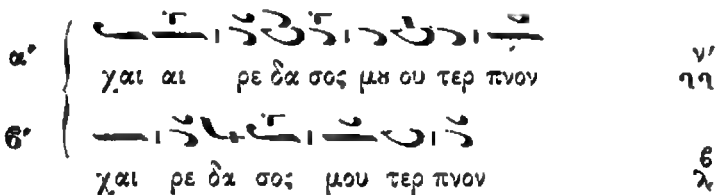 α΄ χαι αι ρε δα σος μȣ ου τερ πνον
ϐ΄ χαι ρε δα σος μου τερ πνον